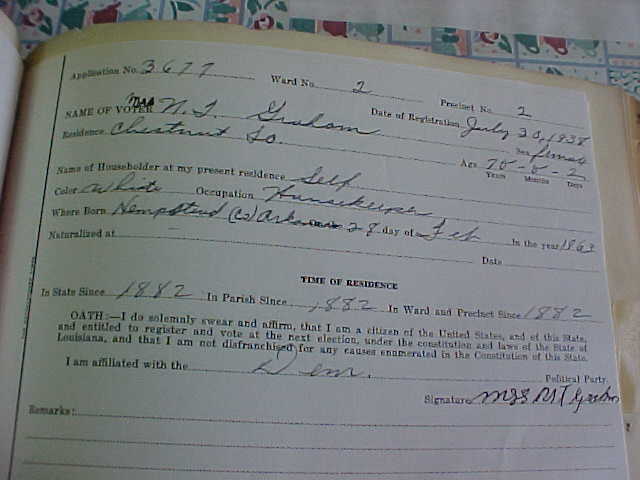 Application No. 3677 Ward No. 2 Precinct No. 2
NAME OF VOTER Mrs N. T. Graham Date of Registration July 30, 1938
Residence Chestnut So. Sex female
Name of Householder at my present residence Self Age 75
Years Months Days
Color White Occupation Housekeeper
Where Born Hempstead (Co) Arkansas 28 day of Feb In the year 1863
Naturalized at Date
TIME OF RESIDENCE
In State Since 1882 In Parish Since 1882 In Ward and Precinct Since 1882
OATH:—I do solemnly swear and affirm, that I am a citizen of the United States, and of this State,
and entitled to register and vote at the next election, under the constitution and laws of the State of
Louisiana, and that I am not disfranchised for any causes enumerated in the Constitution of this State.
I am affiliated with the Dem. Political Party.
Signature Mrs N T Graham
Remarks: